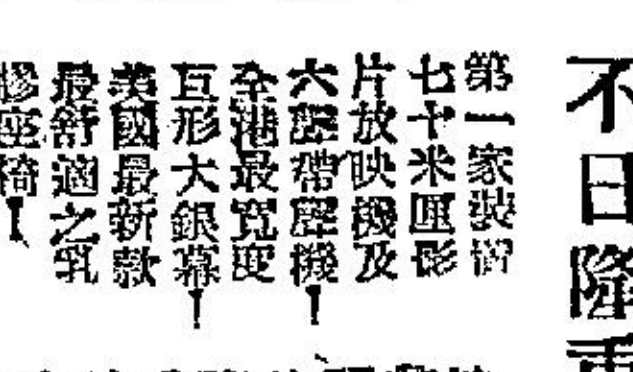 不日隆重
第一家裝置
七十米厘影
片放映機及
六聲帶聲機！
全港最寬度
互形大銀幕！
美國最新款
最舒適之乳
膠座椅！